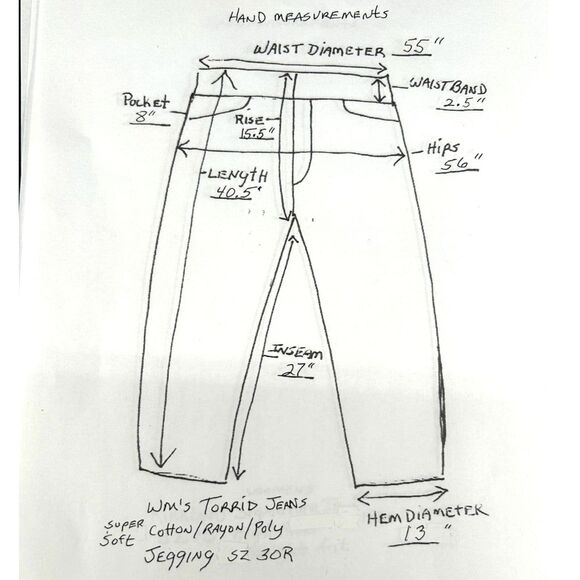 HAND MEASUREMENTS
WAIST DIAMETER 55"
WAISTBAND
2.5"
POCKET
8"
RISE
15.5"
HIPS
56"
LENGTH
40.5"
INSEAM
27"
WM'S TORRID JEANS
SUPER SOFT COTTON/RAYON/POLY
JEGGING SZ 30R
HEM DIAMETER
13"